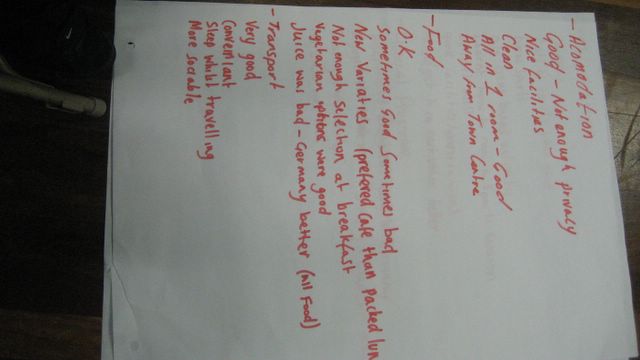 - Acomodation
Good - Not enough privacy
Nice facilities
Clean
All in 1 room - Good
Away from Town Centre
- Food
O.K
Sometimes Good Sometimes bad
New Variaties (prefered Cafe than packed lun
Not enough Selection at breakfast
Vegetarian options ware good
Juice was bad - Germany better (all Food)
- Transport
Very good
Conveinant
Sleep whilst travelling
More sociable